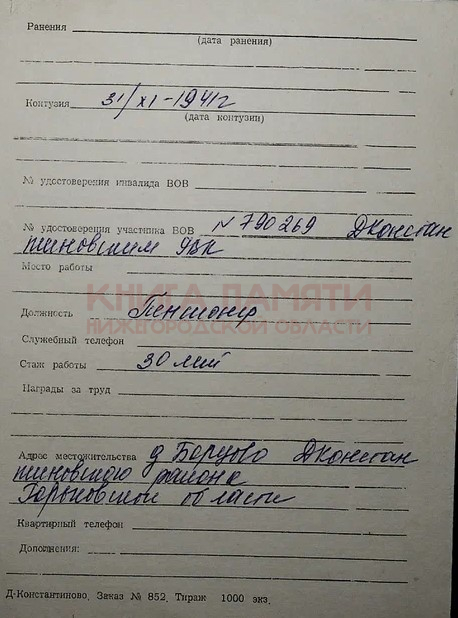 Ранения
(дата ранения)
Контузия 31/XI-1941г
(дата контузии)
№ удостоверения инвалида ВОВ
№ удостоверения участника ВОВ № 790269 Дконстан
тиновским РВК
Место работы
КНИГА ПАМЯТИ
НИЖЕГОРОДСКОЙ ОБЛАСТИ
Должность Пенсионер
Служебный телефон
Стаж работы 30 лет
Награды за труд
Адрес местожительства д Борцово Дконстан
тиновского района
Горьковской области
Квартирный телефон
Дополнения:
Д-Константиново, Заказ № 852. Тираж 1000 экз.